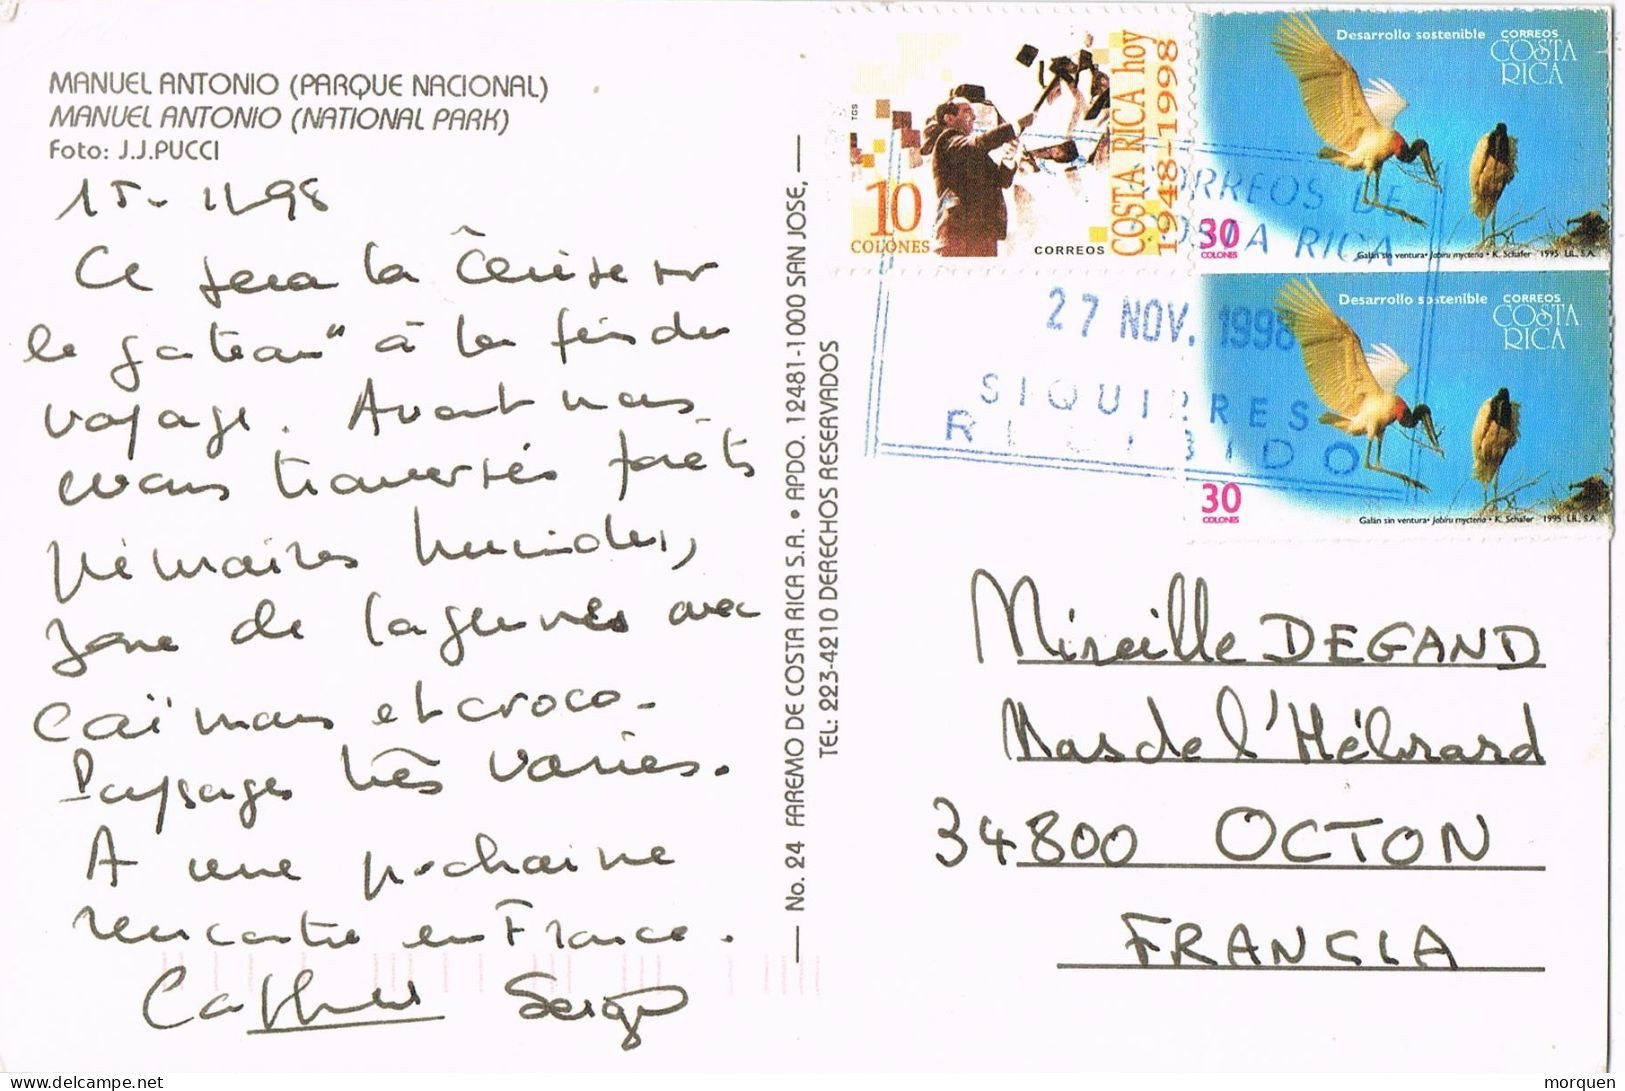 MANUEL ANTONIO (PARQUE NACIONAL)
MANUEL ANTONIO (NATIONAL PARK)
Foto: J.J.PUCCI
15-11-98
Ce sera la "Cerise sur
le gateau" à la fin du
voyage. Avant nous
avons traversés forêts
primaires humides,
zone de lagunes avec
caïmans et croco-
Paysages très variés.
A une prochaine
rencontre en France.
Serge
No. 24 FAREMO DE COSTA RICA S.A. • APDO. 12481-1000 SAN JOSE,
TEL: 223-4210 DERECHOS RESERVADOS
TGS
10
COLONES
CORREOS
COSTA RICA hoy
1948-1998
Desarrollo sostenible
CORREOS
COSTA
RICA
30
COLONES
Galán sin ventura • Jabiru mycteria • K. Schafer 1995 LIL, S.A.
Desarrollo sostenible
CORREOS
COSTA
RICA
30
COLONES
Galán sin ventura • Jabiru mycteria • K. Schafer 1995 LIL, S.A.
CORREOS DE
COSTA RICA
27 NOV. 1998
SIQUIRRES
RECIBIDO
Mireille DEGAND
Mas de l'Hébrard
34800 OCTON
FRANCIA
morquen